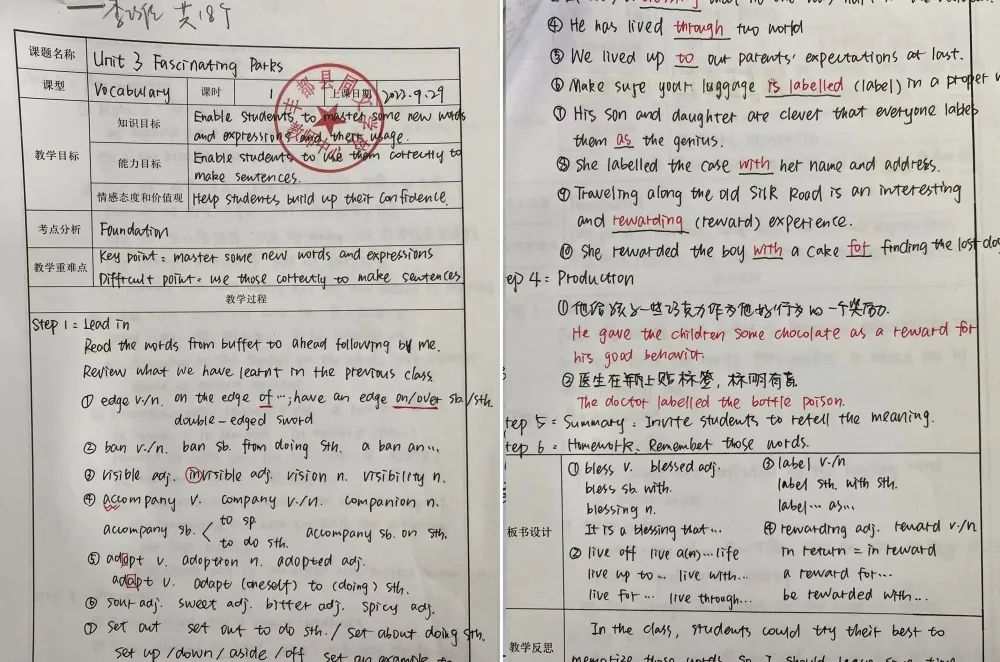 英18个
课题名称 Unit 3 Fascinating Parks
课型 Vocabulary 课时 1 上课日期 2022.9.29
教学目标
知识目标 Enable students to master some new words
and expressions and their usage.
能力目标 Enable students to use them correctly to
make sentences.
情感态度和价值观 Help students build up their confidence.
考点分析 Foundation
教学重难点 Key point: master some new words and expressions
Difficult point: use those correctly to make sentences
教学过程
Step 1: Lead in
Read the words from buffet to ahead following by me.
Review what we have learnt in the previous class.
① edge v./n. on the edge of …; have an edge on/over sb./sth.
double-edged sword
② ban v./n. ban sb. from doing sth. a ban on…
③ visible adj. invisible adj. vision n. visibility n.
④ accompany v. company v./n. companion n.
accompany sb. to sp
to do sth. accompany sb. on sth.
⑤ adopt v. adoption n. adopted adj.
adapt v. adapt (oneself) to (doing) sth.
⑥ sour adj. sweet adj. bitter adj. spicy adj.
⑦ set out set out to do sth. / set about doing sth.
set up /down /aside /off set an example to
④ He has lived through two world
⑤ We lived up to our parents' expectations at last.
⑥ Make sure your luggage is labelled (label) in a proper
⑦ His son and daughter are clever that everyone labels
them as the genius.
⑧ She labelled the case with her name and address.
⑨ Traveling along the old Silk Road is an interesting
and rewarding (reward) experience.
⑩ She rewarded the boy with a cake for finding the lost dog
ep 4: Production
①他给孩子一些巧克力作为他好行为的一个奖励.
He gave the children some chocolate as a reward for
his good behavior.
②医生在瓶上贴标签，标明有毒
The doctor labelled the bottle poison.
tep 5: Summary: Invite students to retell the meaning.
tep 6: Homework. Remember those words.
板书设计
① bless v. blessed adj.
bless sb. with.
blessing n.
It is a blessing that…
② live off live a(n)… life
live up to… live with…
live for… live through…
③ label v./n
label sth. with sth.
label… as…
④ rewarding adj. reward v./n
in return = in reward
a reward for…
be rewarded with…
教学反思 In the class, students could try their best to
memorize those words. So I should leave